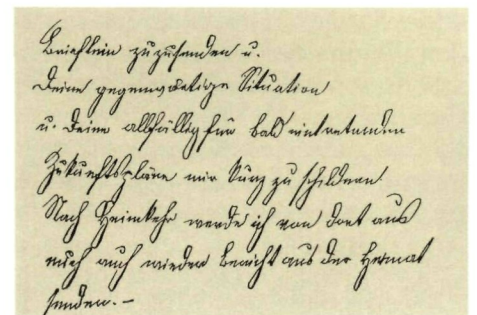 Brieflein zuzusenden u.
Deine gegenwärtige Situation
u. Deine allfällig für bald eintretenden
Zukunftspläne mir kurz zu schildern.
Nach Heimkehr werde ich von dort aus
auch wieder Bericht aus der Heimat
senden.–